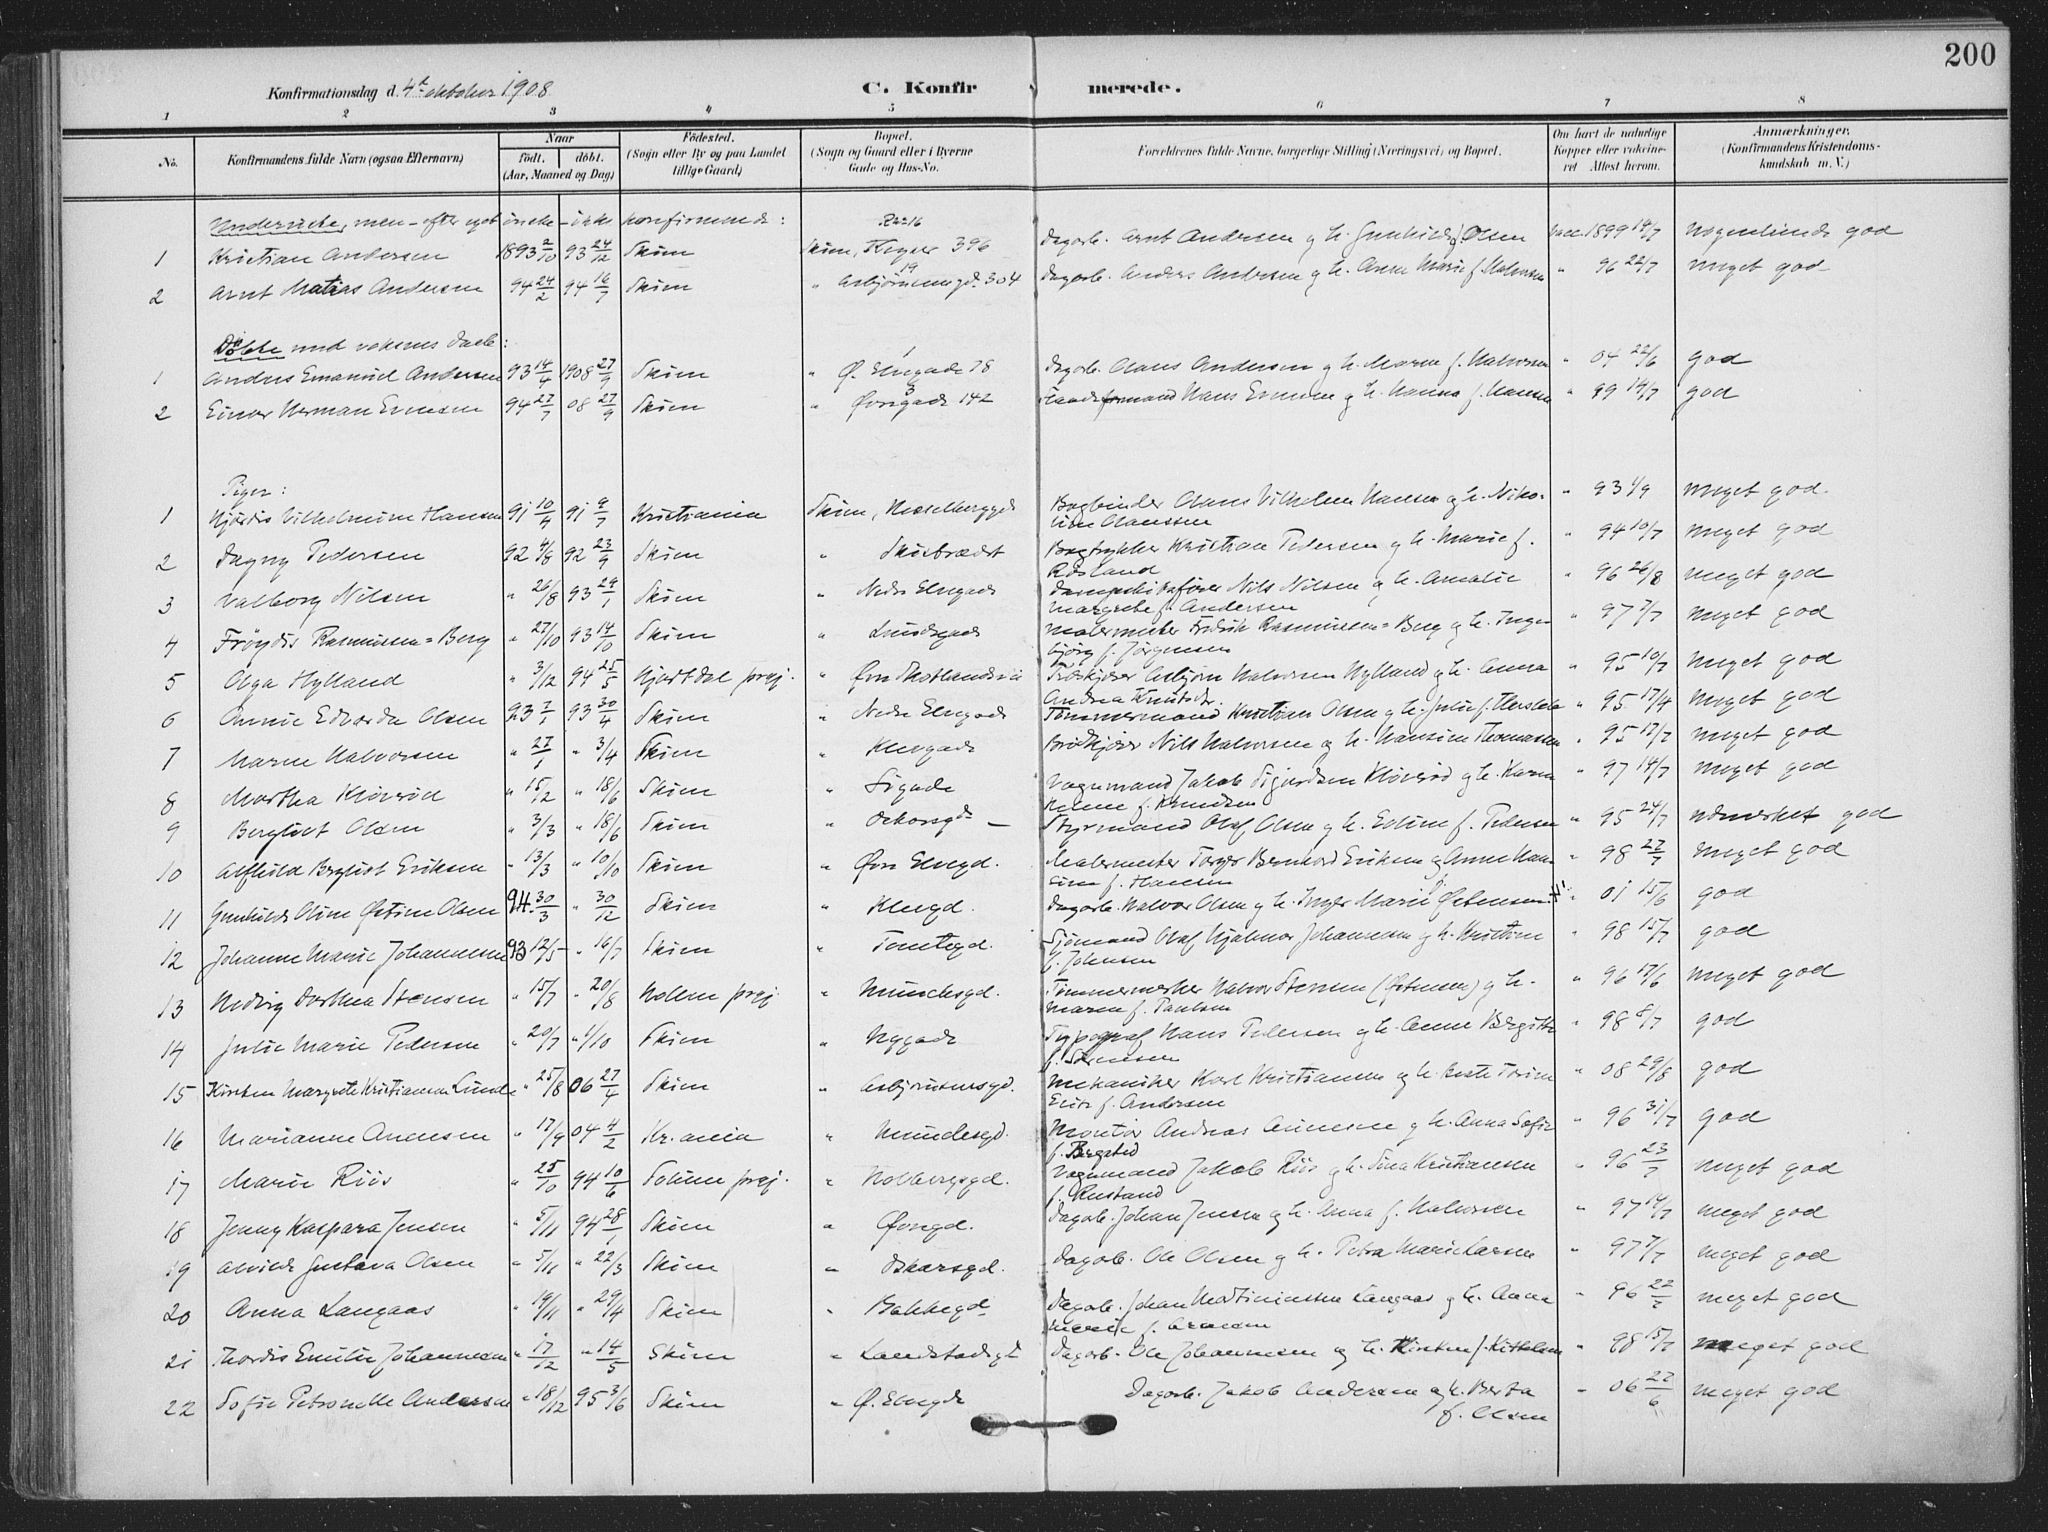 200
Konfirmationsdag d. 4de oktober 1908 C. Konfirmerede.
1 2 3 4 5 6 7 8
No. Konfirmandens fulde Navn (ogsaa Efternavn) Naar født. døbt. (Aar, Maaned og Dag) Fødested. (Sogn eller By og paa Landet tillige Gaard) Bopæl. (Sogn og Gaard eller i Byerne Gade og Hus-No. Forældrenes fulde Navne, borgerlige Stilling (Næringsvei) og Bopæl. Om havt de naturlige Kopper eller vakcineret. Attest herom. Anmærkninger. (Konfirmandens Kristendomskundskab m. V.)
men - efter eget ønske - ikke konfirmerede:
1 Kristian Andersen 1893 2/10 93 24/12 Skien Skien, 396 Dagarb. Arnt Andersen og h. Gunhild f. Olsen vacc. 1899 14/7 nogenlunde god
2 Arnt Matias Andersen 94 24/2 94 16/9 Skien " 304 Dagarb. Anders Andersen og h. Anne Marie f. Halvorsen " 96 22/7 meget god
Døbte med voksnes daab:
1 Anders Emanuel Andersen 93 14/4 1908 27/9 Skien " Ø. Elvegade 78 Dagarb. Claus Andersen og h. Maren f. Halvorsen " 04 22/6 god
2 Einar Herman Evensen 94 27/7 08 27/9 Skien " Øvregade 142 Hans Evensen og h. Hanna f. Hansen " 99 14/7 god
Piger:
1 Hjørdis Vilhelmine Hansen 91 10/4 91 9/7 Kristiania Skien, Hesselberggd. Bogbinder Claus Vilhelm Hansen og h. Nikoline Claussen " 93 1/9 meget god.
2 Dagny Pedersen 92 4/8 92 23/9 Skien " Skiebrædt Bogtrykker Kristian Pedersen og h. Marie f. Røsland " 94 10/7 meget god
3 Valborg Nilsen " 26/8 93 29/1 Skien " Nedre Elvegade Dampskibsfører Nils Nilsen og h. Amalie Margrethe f. Andersen " 96 26/8 meget god
4 Frøydis Rasmussen=Berg " 27/10 93 14/10 Skien " Lundegade Malermester Fredrik Rasmussen=Berg og h. Ingebjørg f. Jørgensen " 97 7/7 meget god
5 Olga Hylland " 3/12 94 25/5 Hjartdal prgj. " Asbjørn Halvorsen Hylland og h. Anna Andrea Knutsdr. " 95 10/7 meget god
6 Annie Edvarda Olsen 93 7/1 93 30/4 Skien " Nedre Elvegade Tømmermand Kristian Olsen og h. Julie f. " 95 17/4 meget god
7 Maren Halvorsen " 27/1 " 3/4 Skien " Klevgade Nils Halvorsen og h. Hansine Thomassen " 95 17/7 meget god
8 Martha Kløverød " 15/2 " 18/6 Skien " Sigade Vognmand Jakob Sigurdsen Kløverød og h. Karen Helene f. Knudsen " 97 14/7 meget god
9 Bergliot Olsen " 3/3 " 18/6 Skien " Oskarsgd. Styrmand Olaf Olsen og h. Edine f. Pedersen " 95 24/7 udmærket god
10 Alfhild Bergliot Eriksen " 13/3 " 10/10 Skien " Øvre Elvegd. Malermester Torger Bernhard Eriksen og Anne Hansine f. Hansen " 98 27/7 meget god
11 Gunhild Oline Østine Olsen 94 30/3 " 30/12 Skien " Klevgd. Dagarb. Halvor Olsen og h. Inger Marie Østensen " 01 15/6 god
12 Johanne Marie Johannesen 93 12/5 " 16/7 Skien " Tomtegd. Sjømand Olaf Hjalmar Johannesen og h. Kristine f. Johnsen " 98 15/7 god
13 Hedvig Dorthea Stensen " 15/7 " 20/8 Holden prgj. " Mundesgd. Tømmermester Halvor Stensen (Østensen) og h. Maren f. Paulsen " 96 17/6 meget god
14 Julie Marie Pedersen " 20/7 " 1/10 Skien " Nygade Typograf Hans Pedersen og h. Anne Bergitte f. Sørensen " 98 8/7 god
15 Kirsten Margrete Kristiansen Lund " 25/8 06 27/4 Skien " Asbjørnsensgd. Mekaniker Karl Kristiansen og h. f. Andersen " 08 29/8 god
16 Marianne Arnesen " 17/9 04 4/2 Kr.ania " Mundesgd. Montør Andreas Arnesen og h. Anna Sofie f. Bergsted " 96 31/7 god
17 Marie Riis " 25/10 94 10/6 Solum prgj. " Holbergsgd. Vognmand Jakob Riis og h. Sina Kristiansen f. Rustand " 96 23/7 meget god
18 Jenny Kaspara Jensen " 5/11 94 28/1 Skien " Øvregd. Dagarb. Johan Jensen og h. Anna f. Halvorsen " 97 14/7 meget god
19 Alvilde Gustava Olsen " 5/11 " 22/3 Skien " Oskarsgd. Dagarb. Ole Olsen og h. Petra Marie Larsen " 97 7/7 meget god
20 Anna Langaas " 19/11 " 29/4 Skien " Bakkegd. Dagarb. Johan Martiniussen Langaas og h. Anna Marie f. " 96 22/7 meget god
21 Thordis Emilie Johannesen " 17/12 " 14/5 Skien " Landstadsgt. Dagarb. Ole Johannesen og h. Kirsten f. Kittelsen " 98 15/7 meget god
22 Sofie Petronelle Andersen " 18/12 95 3/6 Skien " Ø. Elvegd. Dagarb. Jakob Andersen og h. Berta f. Olsen " 06 22/6 meget god